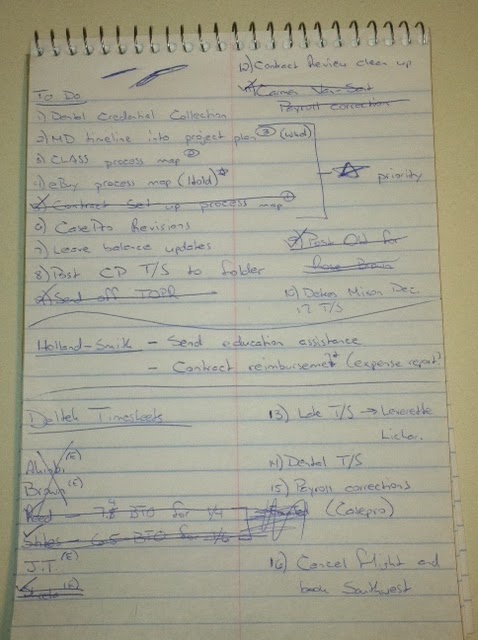 To Do
1) Dental Credential Collection
2) MD timeline into project plan ③ (Wed)
3) CLASS process map ②
4) eBuy process map (Hold)
5) Contract Set up process map ①
priority
6) CasePro Revisions
7) Leave balance updates
8) Post CP T/S to folder
9) Send off TOPR
12) Contract Review clean up
Payroll correction
Post Old for
17 T/S
Holland-Smith – Send education assistance
– Contract reimbursement (expense report?)
Deltek Timesheets
(E)
Brown (E)
BTO for 1/4
6.5 BTO for 1/6
J.T. (E)
13) Late T/S → Leverette
14) Dental T/S
15) Payroll corrections
(Casepro)
16) Cancel flight and
book Southwest